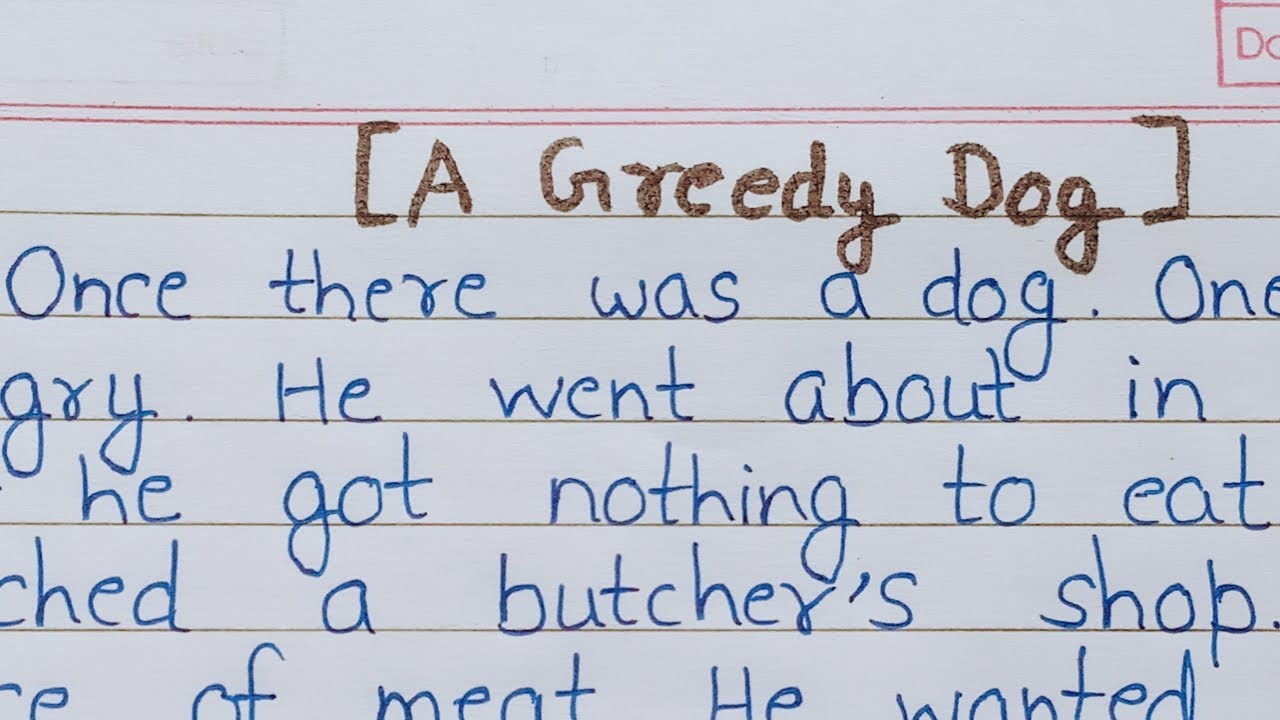 Do
[A Greedy Dog]
Once there was a dog. One
gry. He went about in
he got nothing to eat
ched a butcher's shop.
ce of meat He wanted